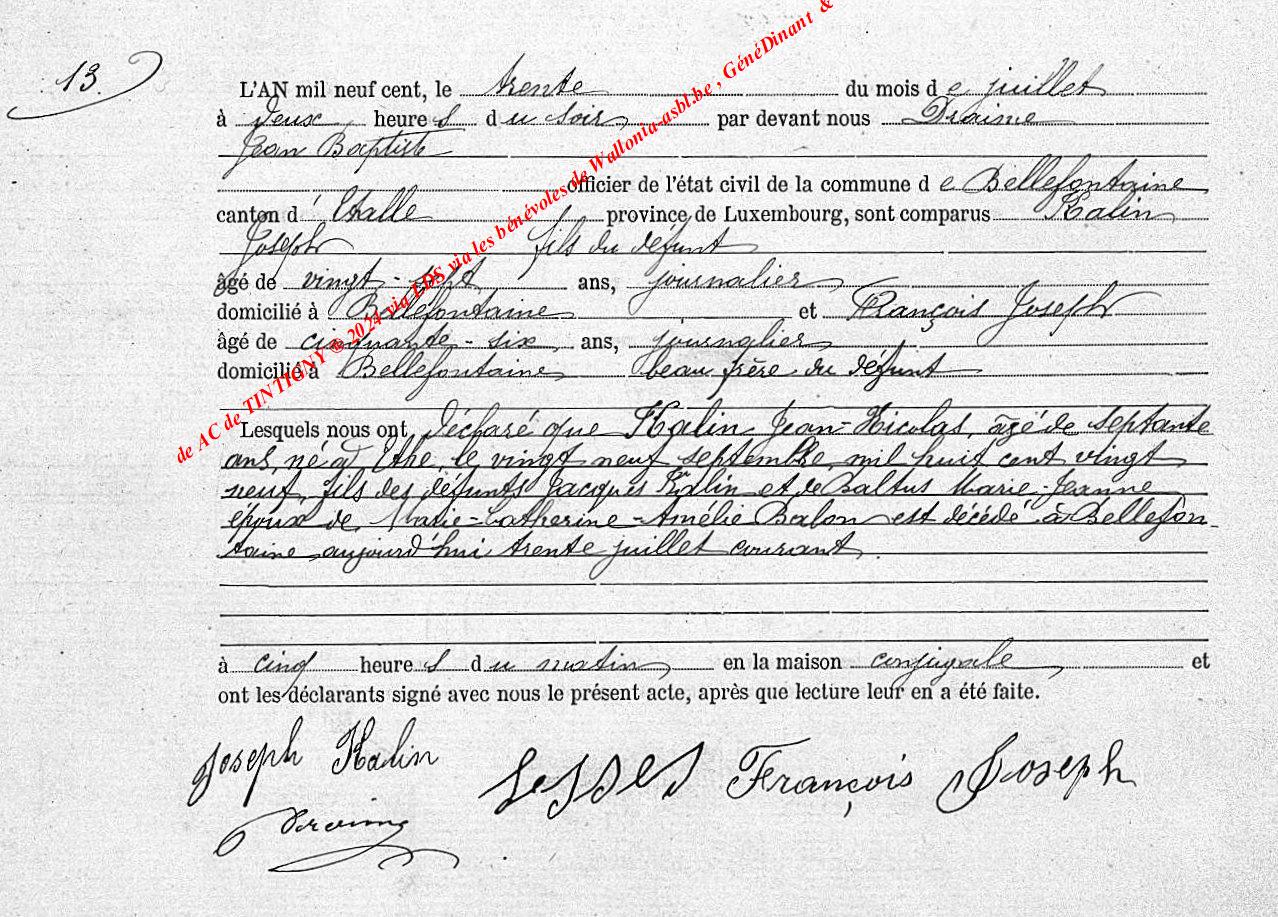 13.
L'AN mil neuf cent, le trente du mois de juillet
à deux heures du soir par devant nous Draime
Jean Baptiste
officier de l'état civil de la commune de Bellefontaine
canton d'Etalle province de Luxembourg, sont comparus Kalin
Joseph fils du défunt
âgé de vingt-sept ans, journalier
domicilié à Bellefontaine et François Joseph
âgé de cinquante-six ans, journalier
domicilié à Bellefontaine beau frère du défunt
Lesquels nous ont déclaré que Kalin Jean-Nicolas, âgé de septante
ans, né à Ethe le vingt neuf septembre mil huit cent vingt
neuf, fils des défunts Jacques Kalin et de Baltus Marie-Jeanne
époux de Marie-Catherine-Amélie Balon est décédé à Bellefon-
taine aujourd'hui trente juillet courant.
à cinq heures du matin en la maison conjugale et
ont les déclarants signé avec nous le présent acte, après que lecture leur en a été faite.
Joseph Kalin
François Joseph
Draime
de AC de TINTIGNY ® 2024 via LDS via les bénévoles de Wallonia-asbl.be , GénéDinant &